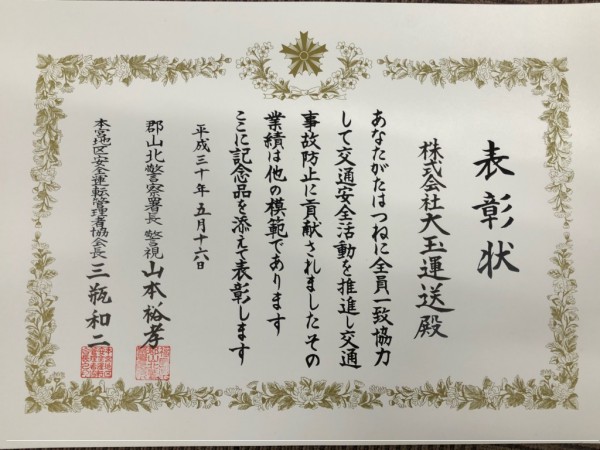 表彰状
株式会社大玉運送殿
あなたがたはつねに全員一致協力
して交通安全活動を推進し交通
事故防止に貢献されましたその
業績は他の模範であります
ここに記念品を添えて表彰します
平成三十年五月十六日
郡山北警察署長 警視 山本裕孝
本宮地区安全運転管理者協会長 三瓶和二